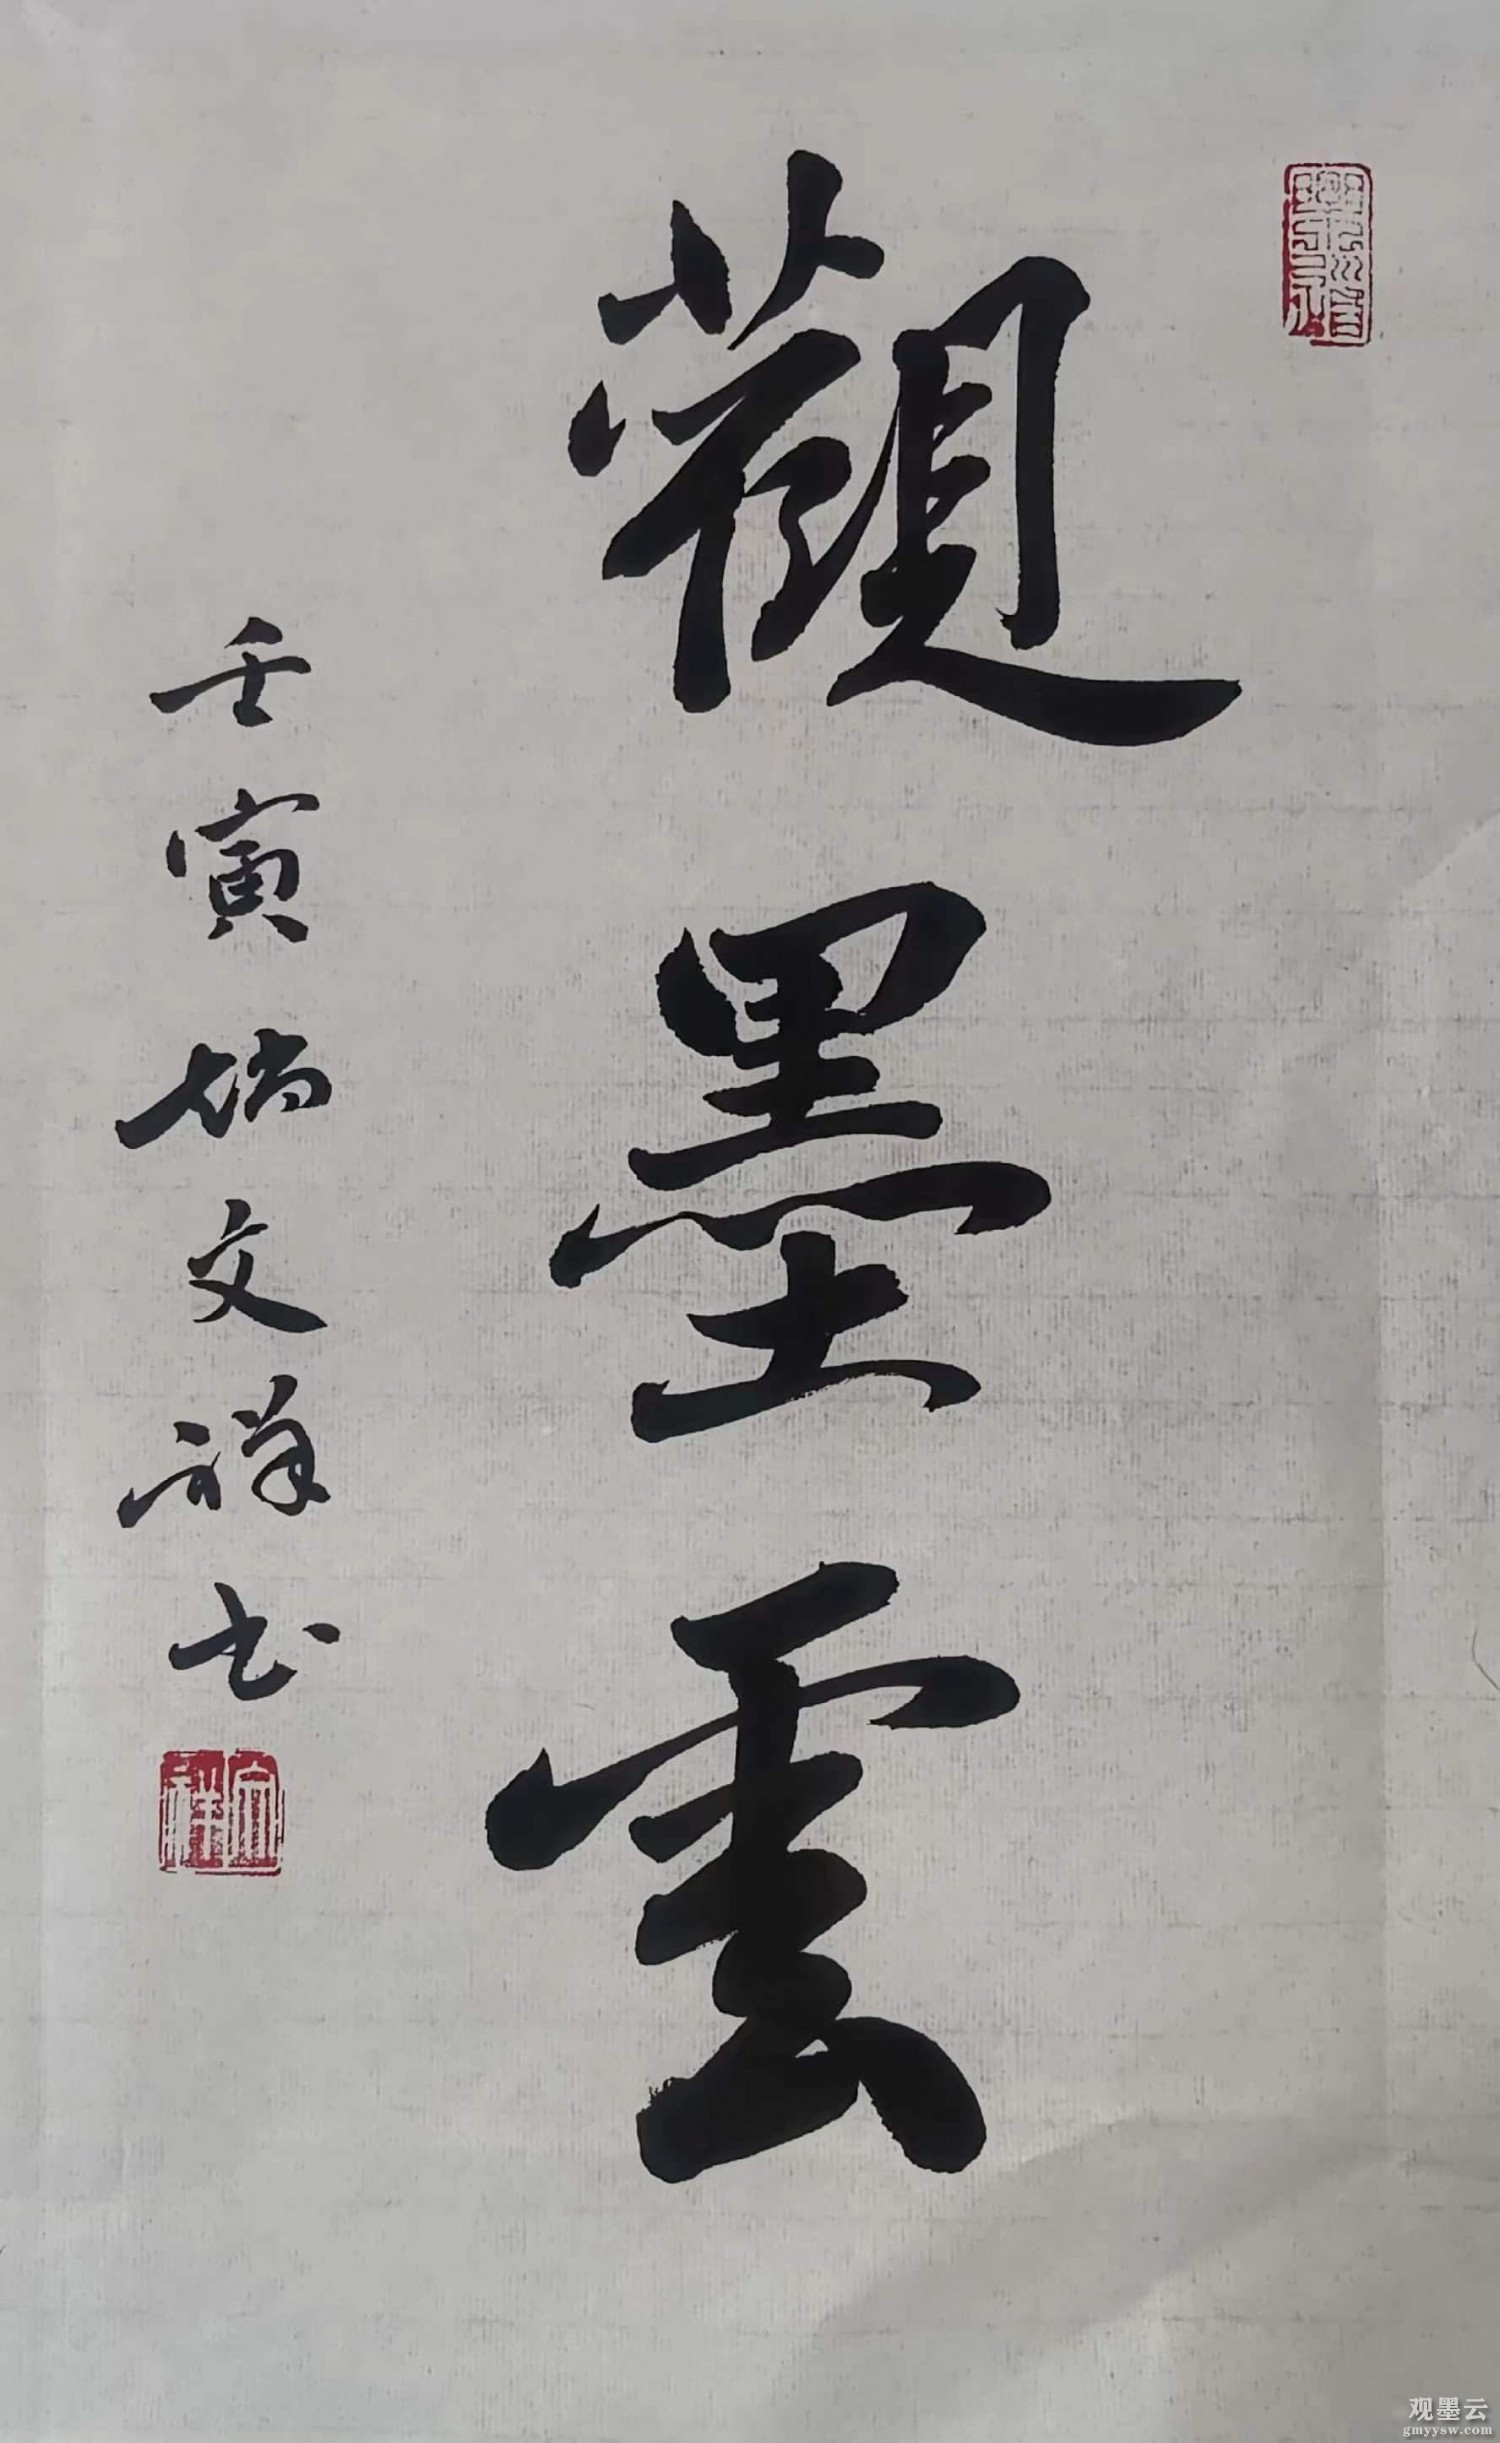 觀墨雲
壬寅 文祥书
观墨云
gmyysw.com